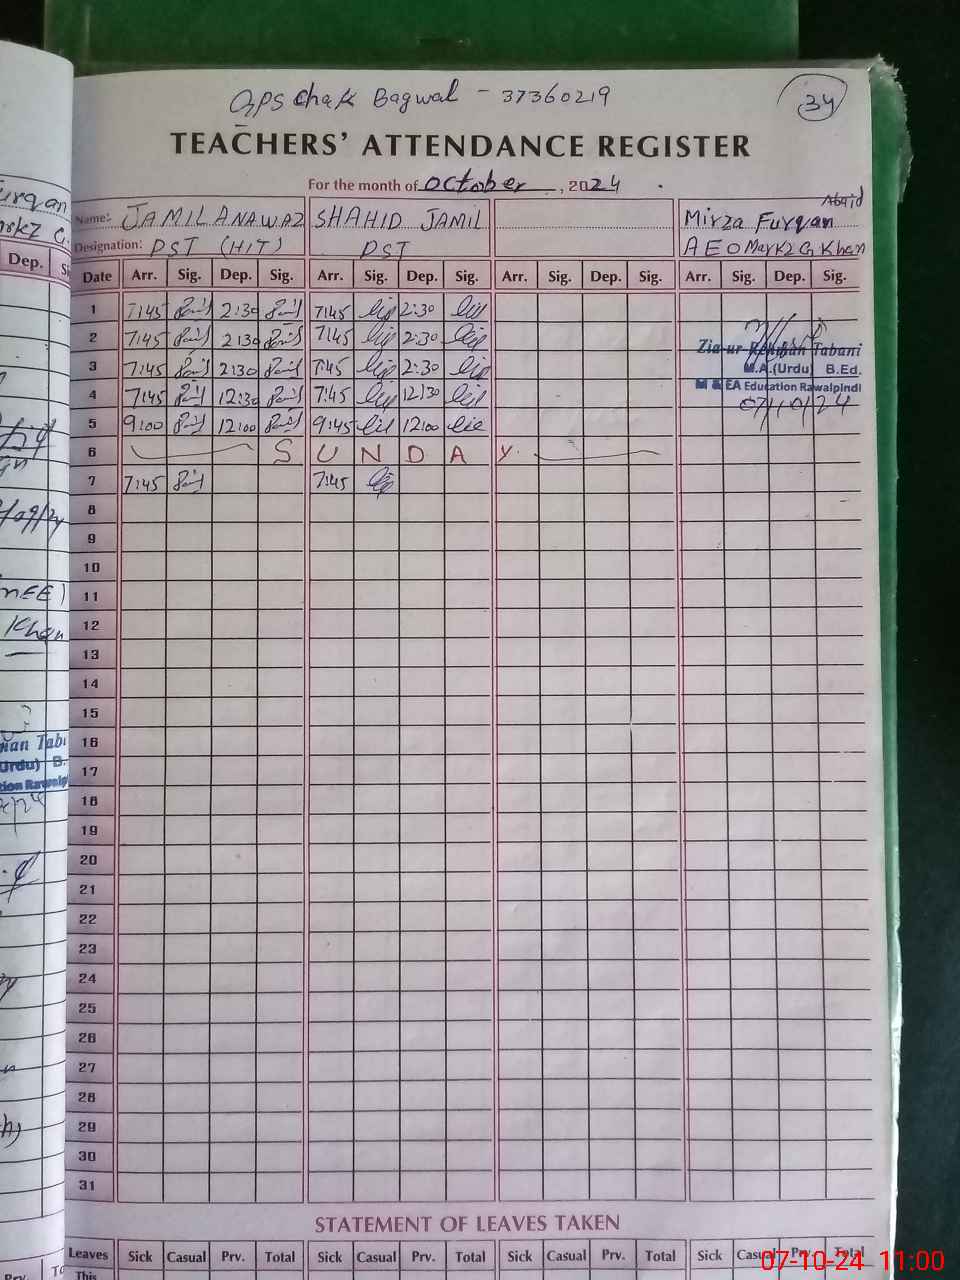 GPS Chak Bagwal - 37360219
34
TEACHERS' ATTENDANCE REGISTER
For the month of October, 2024
Name: JAMILA NAWAZ SHAHID JAMIL Mirza Furqan
Designation: PST (HIT) PST AEO Markz G Khan
Date Arr. Sig. Dep. Sig. Arr. Sig. Dep. Sig. Arr. Sig. Dep. Sig. Arr. Sig. Dep. Sig.
1 7:45 2:30 7:45 2:30
2 7:45 2:30 7:45 2:30
3 7:45 2:30 7:45 2:30
4 7:45 12:30 7:45 12:30
5 9:00 12:00 9:45 12:00
6 SUNDAY
7 7:45 7:45
8
9
10
11
12
13
14
15
16
17
18
19
20
21
22
23
24
25
26
27
28
29
30
31
Zia-ur-Rehman Tabani
M.A.(Urdu) B.Ed.
M & EA Education Rawalpindi
07/10/24
STATEMENT OF LEAVES TAKEN
Leaves Sick Casual Prv. Total Sick Casual Prv. Total Sick Casual Prv. Total Sick Casual Prv. Total
This
07-10-24 11:00
Furqan
Dep.
Khan